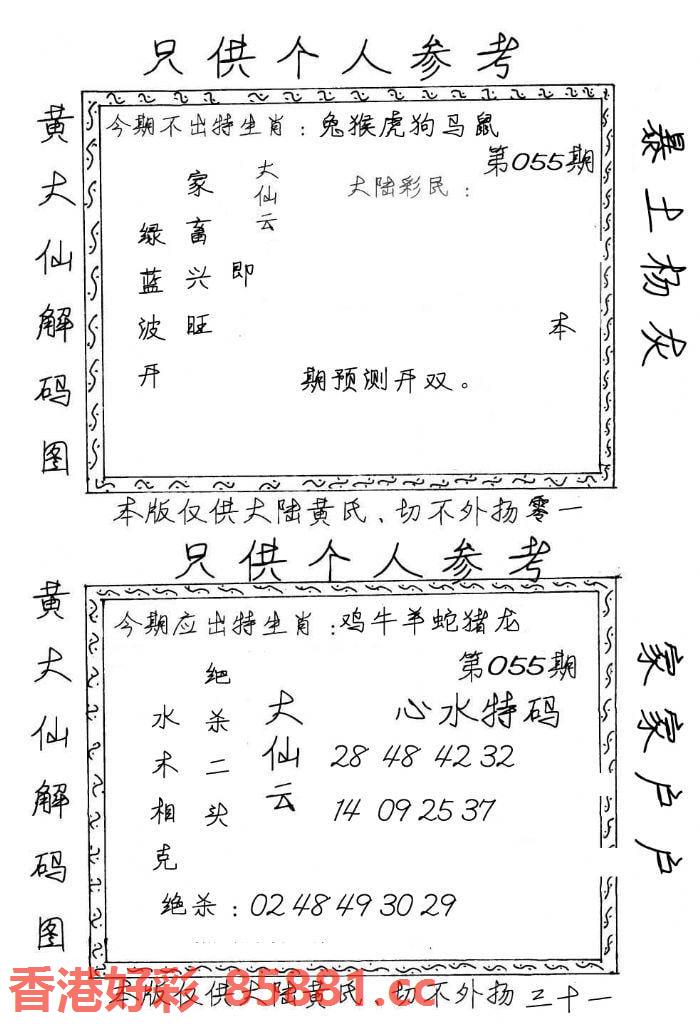 只供个人参考
黄大仙解码图
今期不出特生肖：兔猴虎狗马鼠
第055期
大仙云
家畜兴旺
即
绿蓝波开
大陆彩民：
本
期预测开双。
暴土杨灰
本版仅供大陆黄氏、切不外扬零一
只供个人参考
黄大仙解码图
今期应出特生肖：鸡牛羊蛇猪龙
第055期
绝杀二头
水木相克
大仙云
心水特码
28 48 42 32
14 09 25 37
绝杀：02 48 49 30 29
家家户户
本版仅供大陆黄氏、切不外扬三十一
香港好彩 85881.cc